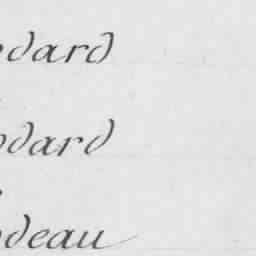 edard
odard
odeau